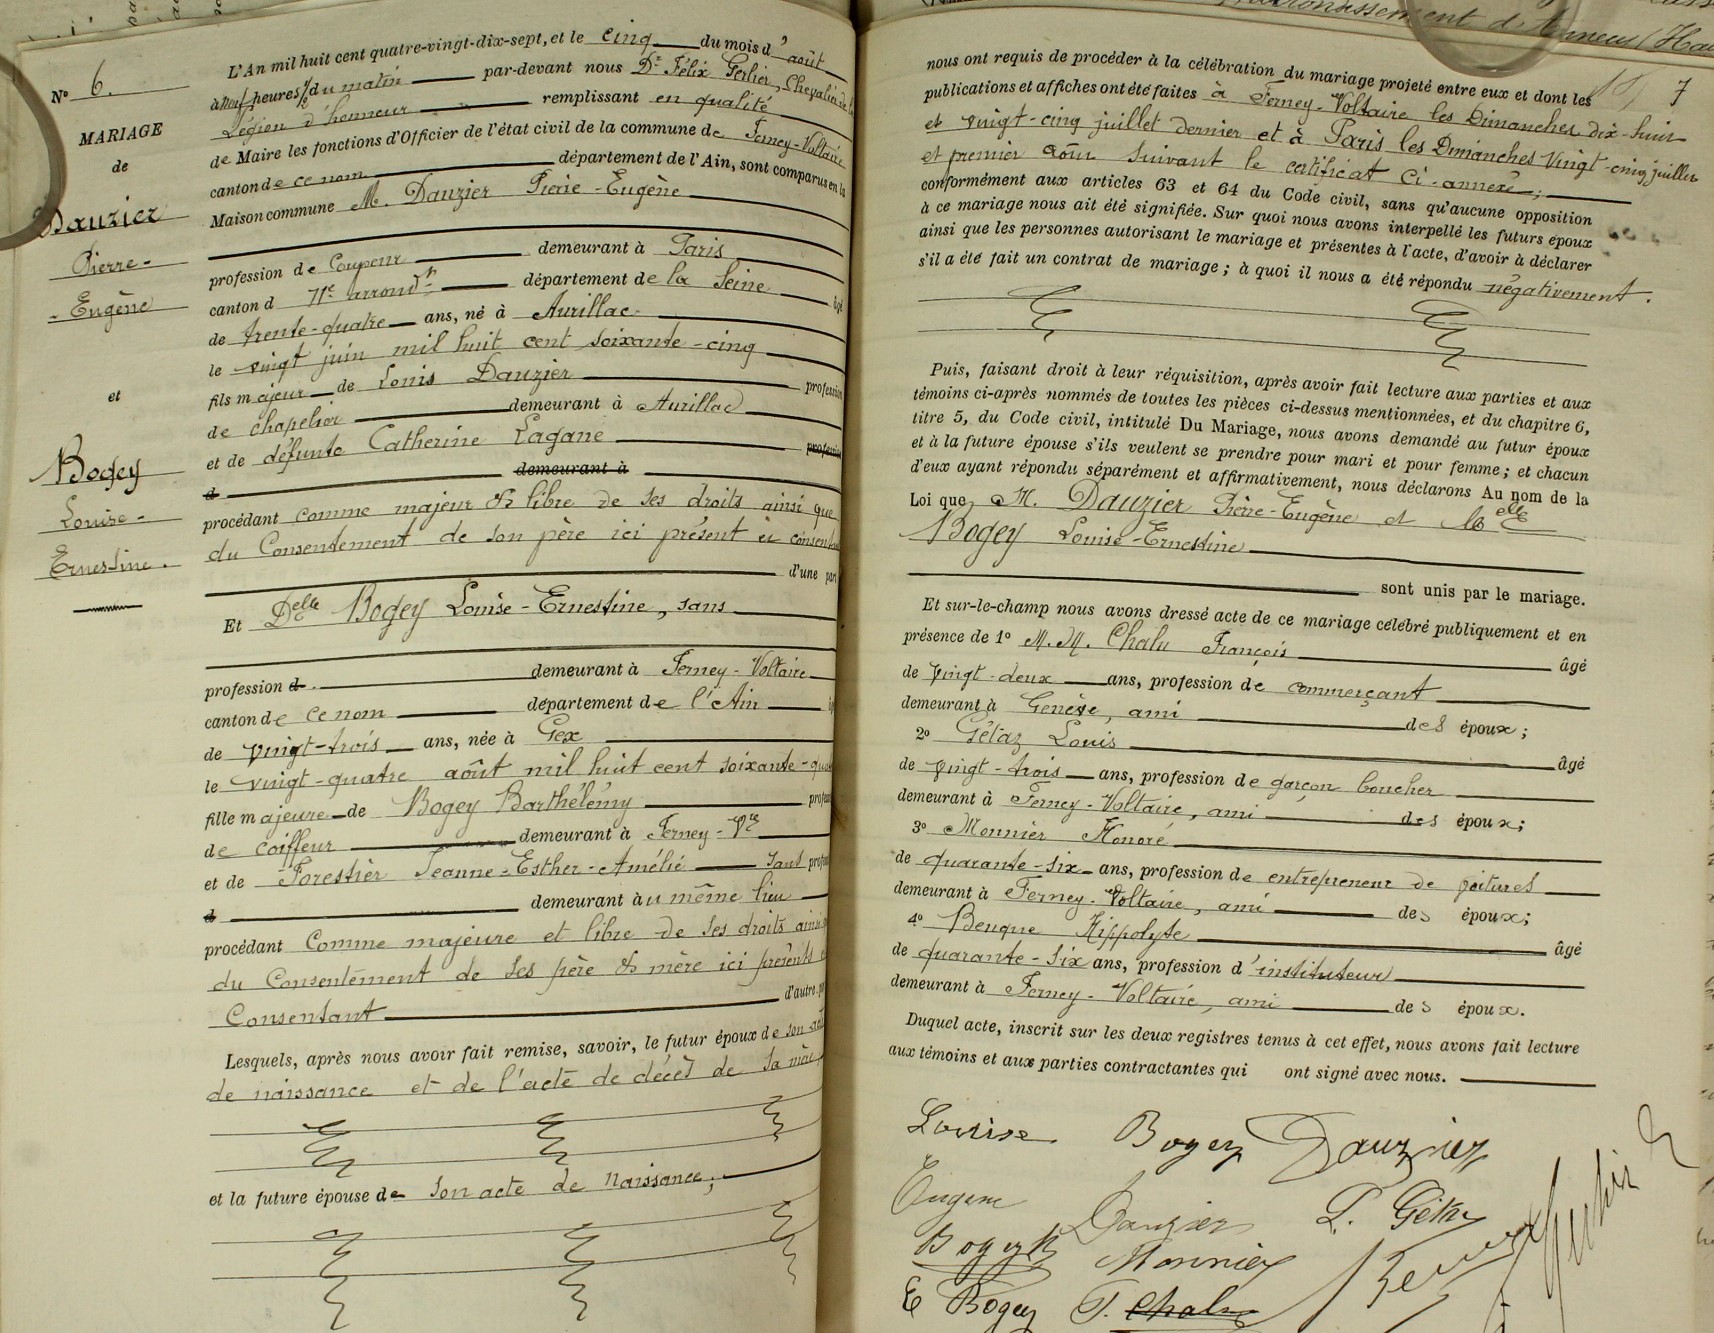 N° 6.
MARIAGE
de
Dauzier
Pierre-
Eugène
et
Bogey
Louise-
Ernestine.
L'An mil huit cent quatre-vingt-dix-sept, et le cinq du mois d'août
à neuf heures du matin par-devant nous Dr Félix Gerlier, Chevalier de la
Légion d'honneur remplissant en qualité
de Maire les fonctions d'Officier de l'état civil de la commune de Ferney-Voltaire
canton de ce nom département de l'Ain, sont comparus en la
Maison commune M. Dauzier Pierre-Eugène
profession de Coupeur demeurant à Paris
canton d 11e arrondt département de la Seine âgé
de trente-quatre ans, né à Aurillac
le vingt juin mil huit cent soixante-cinq
fils majeur de Louis Dauzier profession
de chapelier demeurant à Aurillac
et de défunte Catherine Lagane profession
d demeurant à
procédant comme majeur & libre de ses droits ainsi que
du Consentement de son père ici présent &
d'une part
Et Delle Bogey Louise-Ernestine, sans
profession d demeurant à Ferney-Voltaire
canton de ce nom département de l'Ain
de vingt-trois ans, née à Gex
le vingt-quatre août mil huit cent soixante-
fille majeure de Bogey Barthélémy
de coiffeur demeurant à Ferney-Vre
et de Forestier Jeanne-Esther-Amélie sans
d demeurant au même lieu
procédant Comme majeure et libre de ses droits
du Consentement de ses père & mère ici présents
Consentant d'autre
Lesquels, après nous avoir fait remise, savoir, le futur époux de son
de naissance et de l'acte de décès de sa mère
et la future épouse de son acte de naissance;
7
nous ont requis de procéder à la célébration du mariage projeté entre eux et dont les
publications et affiches ont été faites à Ferney-Voltaire les Dimanches dix-huit
et vingt-cinq juillet dernier et à Paris les Dimanches vingt-cinq juillet
et premier août suivant le certificat ci-annexé;
conformément aux articles 63 et 64 du Code civil, sans qu'aucune opposition
à ce mariage nous ait été signifiée. Sur quoi nous avons interpellé les futurs époux
ainsi que les personnes autorisant le mariage et présentes à l'acte, d'avoir à déclarer
s'il a été fait un contrat de mariage ; à quoi il nous a été répondu négativement.
Puis, faisant droit à leur réquisition, après avoir fait lecture aux parties et aux
témoins ci-après nommés de toutes les pièces ci-dessus mentionnées, et du chapitre 6,
titre 5, du Code civil, intitulé Du Mariage, nous avons demandé au futur époux
et à la future épouse s'ils veulent se prendre pour mari et pour femme ; et chacun
d'eux ayant répondu séparément et affirmativement, nous déclarons Au nom de la
Loi que M. Dauzier Pierre-Eugène et
Bogey Louise-Ernestine
sont unis par le mariage.
Et sur-le-champ nous avons dressé acte de ce mariage célébré publiquement et en
présence de 1° M.M. Chalu François âgé
de vingt-deux ans, profession de commerçant
demeurant à Genève, ami des époux;
2° Gétaz Louis âgé
de vingt-trois ans, profession de garçon boucher
demeurant à Ferney-Voltaire, ami des époux;
3° Monnier Honoré
de quarante-six ans, profession de entrepreneur de voitures
demeurant à Ferney-Voltaire, ami des époux;
4° Benque Hippolyte âgé
de quarante-six ans, profession d'instituteur
demeurant à Ferney-Voltaire, ami des époux.
Duquel acte, inscrit sur les deux registres tenus à cet effet, nous avons fait lecture
aux témoins et aux parties contractantes qui ont signé avec nous.
Louise Bogey Dauzier
Eugène Dauzier L. Gétaz
Bogey B Monnier
E Bogey F. Chalu